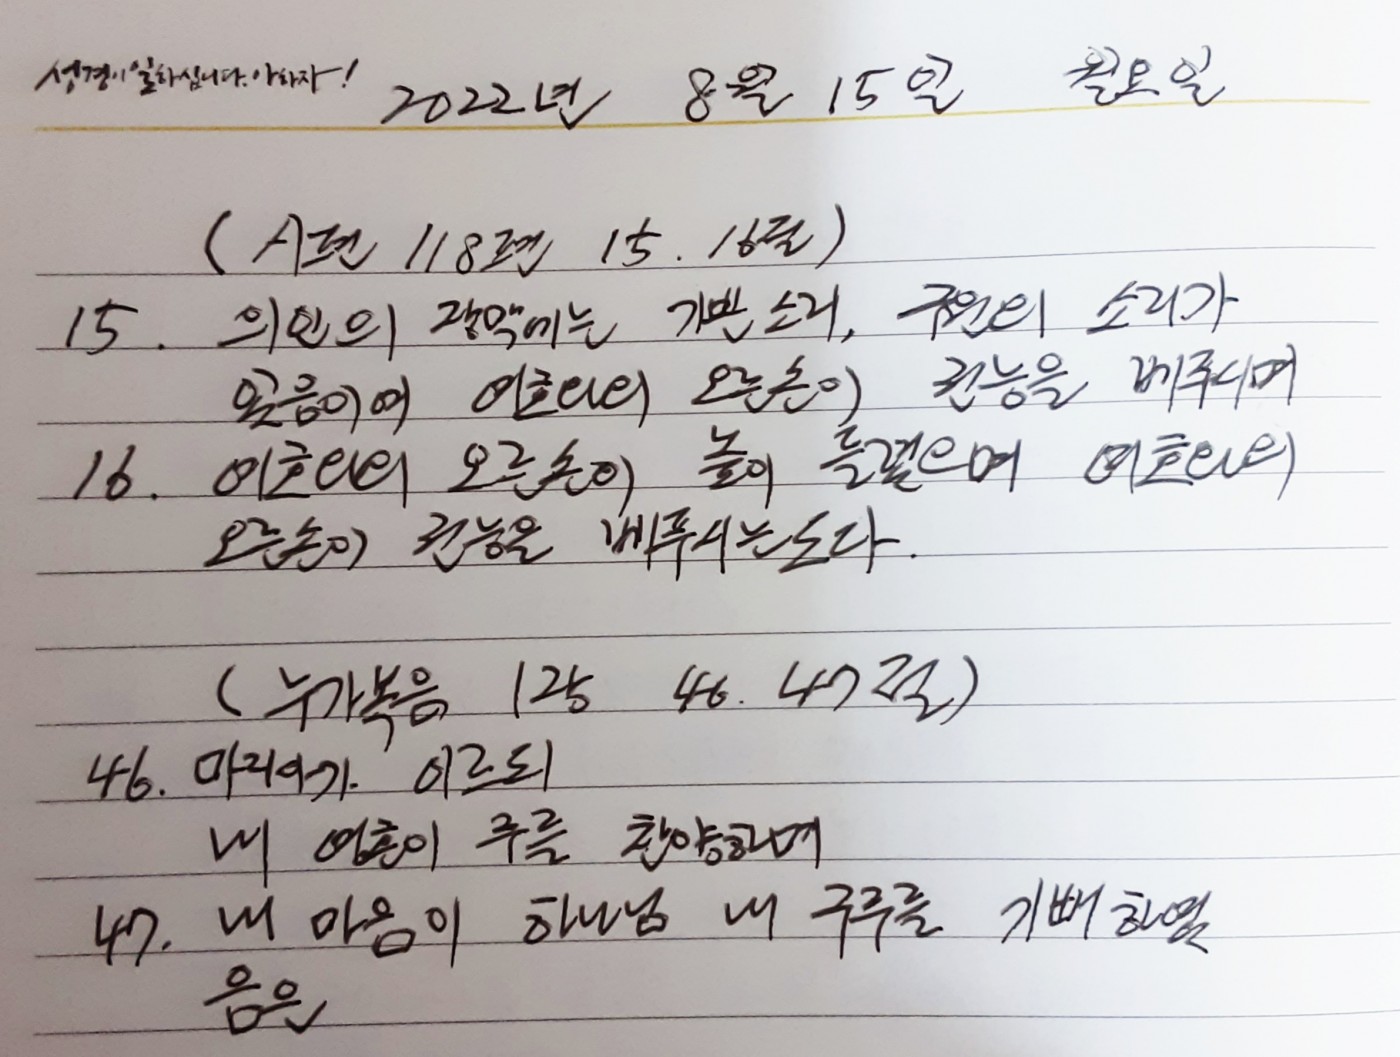 성경이 일하십니다. 아하자!
2022년 8월 15일 월요일
(시편 118편 15. 16절)
15. 의인의 장막에는 기쁜 소리, 구원의 소리가
있음이여 여호와의 오른손이 권능을 베푸시며
16. 여호와의 오른손이 높이 들렸으며 여호와의
오른손이 권능을 베푸시는도다.
(누가복음 1장 46. 47절)
46. 마리아가 이르되
내 영혼이 주를 찬양하며
47. 내 마음이 하나님 내 구주를 기뻐하였
음은